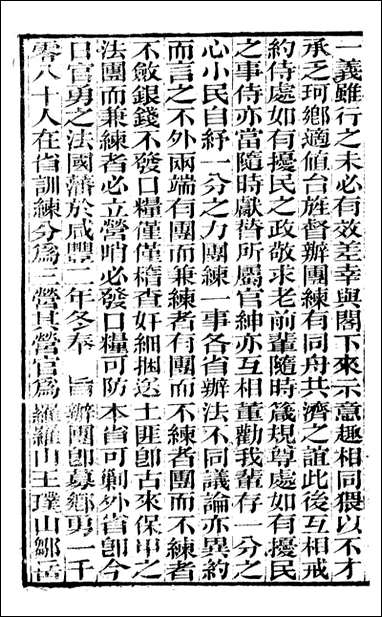 一義雖行之未必有效差幸與閣下來示意趣相同猥以不才
承乏珂鄉適值台旌督辦團練有同舟共濟之誼此後互相戒
約侍處如有擾民之政敬求老前輩隨時箴規尊處如有擾民
之事侍亦當隨時獻替所屬官紳亦互相董勸我輩存一分之
心小民自紓一分之力團練一事各省辦法不同議論亦異約
而言之不外兩端有團而兼練者有團而不練者團而不練者
不斂銀錢不發口糧僅僅稽查奸細捆送土匪卽古來保甲之
法團而兼練者必立營哨必發口糧可防本省可剿外省卽今
日官勇之法國藩於咸豐二年冬奉　旨辦團卽募鄉勇一千
零八十人在省訓練分爲三營其營官爲羅羅山王璞山鄒岳